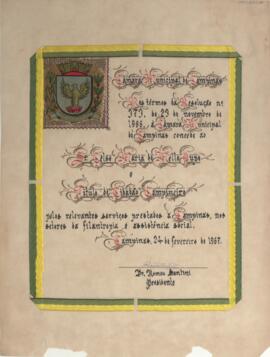 Câmara Municipal de Campinas
Nos têrmos da Resolução nº
373, de 29 de novembro de
1966, a Câmara Municipal
de Campinas concede ao
Sr. Celso Maria de Mello Pupo
o
Título de Cidadão Campineiro
pelos relevantes serviços prestados a Campinas, nos
setores da filantropia e assistência social.
Campinas, 24 de fevereiro de 1967.
Dr. Romeu Santini
Presidente